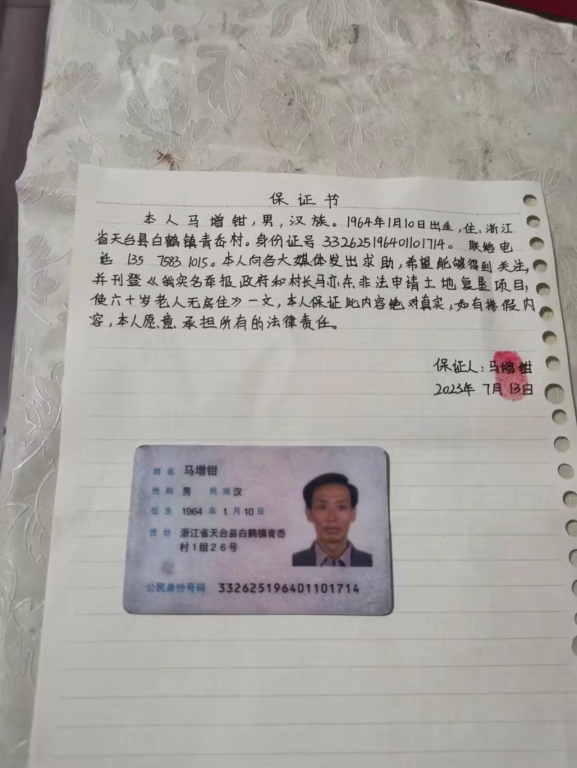 保证书
本人马增钳,男,汉族。1964年1月10日出生,住浙江
省天台县白鹤镇青岙村。身份证号332625196401101714。联络电
话13575831015。本人向各大媒体发出求助,希望能够得到关注,
并刊登《我实名举报政府和村长马亦东非法申请土地复垦项目,
使六十岁老人无居住》一文,本人保证此内容绝对真实,如有掺假内
容,本人愿意承担所有的法律责任。
保证人:马增钳
2023年7月13日
姓名 马增钳
性别 男 民族 汉
出生 1964年1月10日
住址 浙江省天台县白鹤镇青岙
村1组26号
公民身份号码 332625196401101714